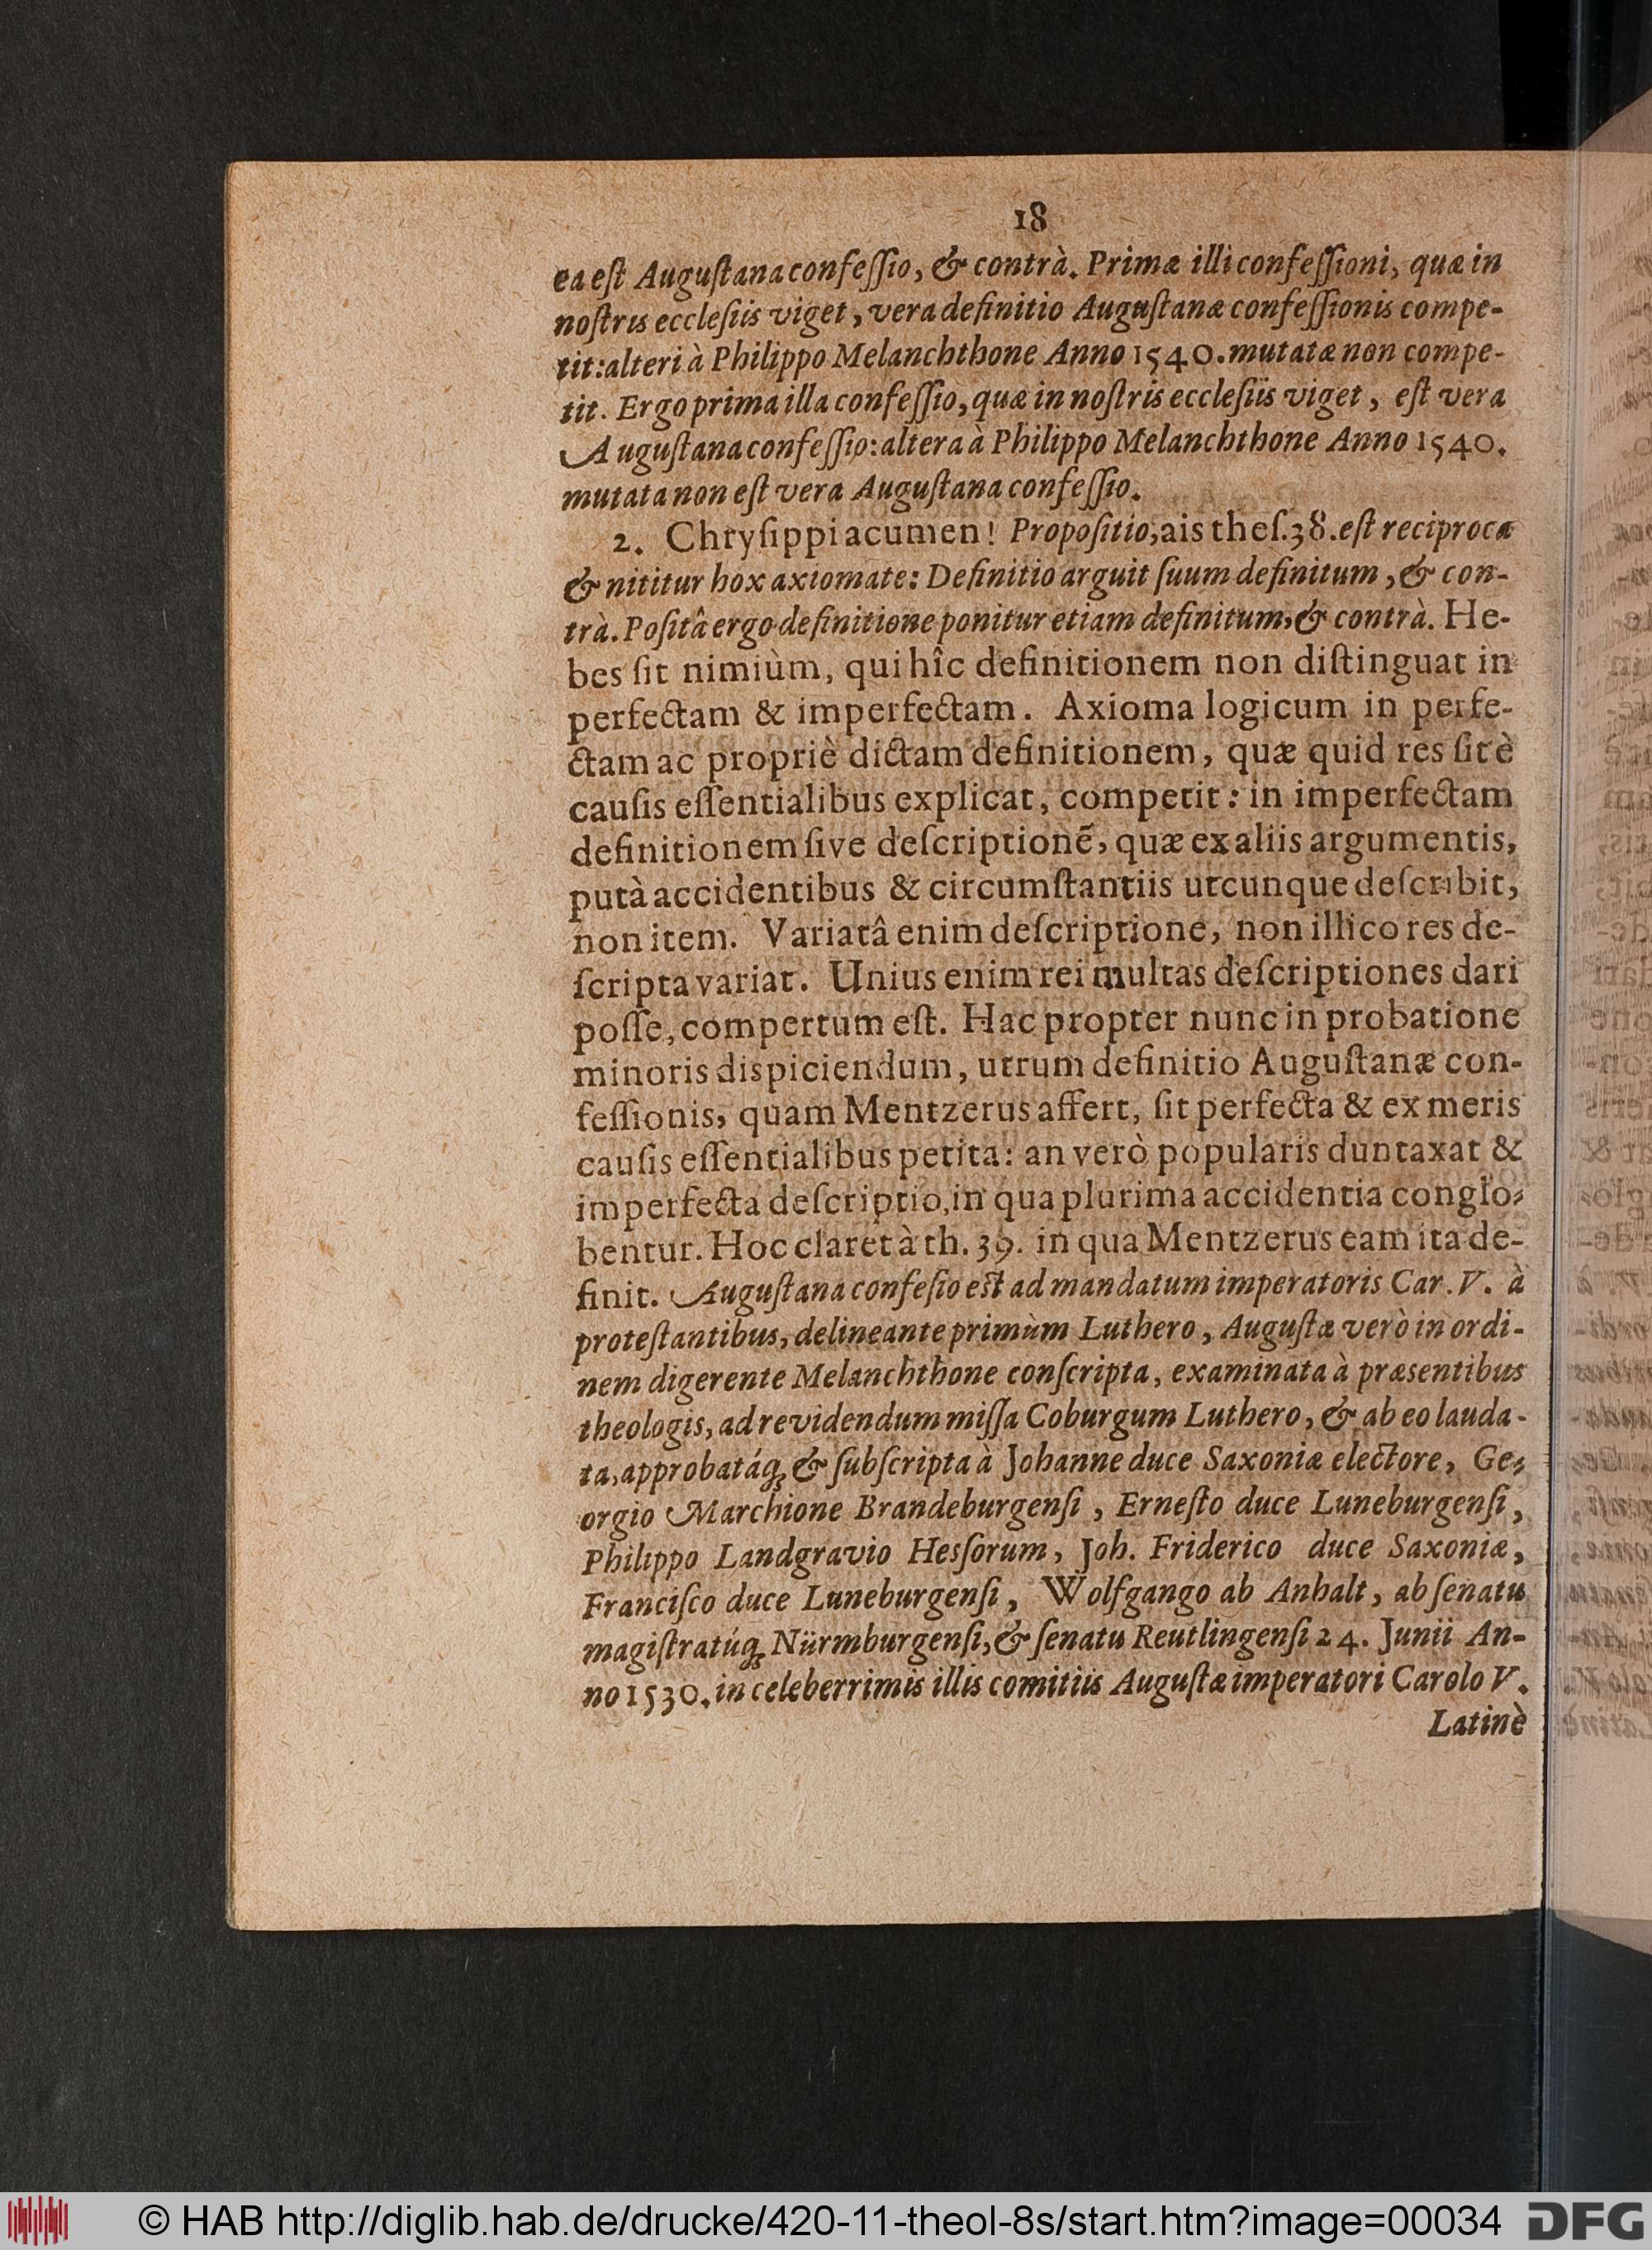 18
ea eſt Auguſtana confeſſio, & contrà. Primæ illi confeſſioni, quæ in
noſtris eccleſiis viget, vera definitio Auguſtanæ confeſſionis compe-
tit: alteri à Philippo Melanchthone Anno 1540. mutatæ non compe-
tit. Ergo prima illa confeſſio, quæ in noſtris eccleſiis viget, eſt vera
Auguſtana confeſſio: altera à Philippo Melanchthone Anno 1540.
mutata non eſt vera Auguſtana confeſſio.
2. Chryſippi acumen! Propoſitio, ais theſ. 38. eſt reciproca
& nititur hox axiomate: Definitio arguit ſuum definitum, & con-
trà. Poſitâ ergo definitione ponitur etiam definitum, & contrà. He-
bes ſit nimiùm, qui hîc definitionem non diſtinguat in
perfectam & imperfectam. Axioma logicum in perfe-
ctam ac propriè dictam definitionem, quæ quid res ſit è
cauſis eſſentialibus explicat, competit: in imperfectam
definitionem ſive deſcriptionẽ, quæ ex aliis argumentis,
putà accidentibus & circumſtantiis utcunque deſcribit,
non item. Variatâ enim deſcriptione, non illico res de-
ſcripta variat. Unius enim rei multas deſcriptiones dari
poſſe, compertum eſt. Hac propter nunc in probatione
minoris dispiciendum, utrum definitio Auguſtanæ con-
feſſionis, quam Mentzerus affert, ſit perfecta & ex meris
cauſis eſſentialibus petita: an verò popularis duntaxat &
imperfecta deſcriptio, in qua plurima accidentia conglo-
bentur. Hoc claret à th. 39. in qua Mentzerus eam ita de-
finit. Auguſtana confeſio eſt ad mandatum imperatoris Car. V. à
proteſtantibus, delineante primùm Luthero, Auguſtæ verò in ordi-
nem digerente Melanchthone conſcripta, examinata à præsentibus
theologis, ad revidendum miſſa Coburgum Luthero, & ab eo lauda-
ta, approbatáq; & ſubſcripta à Johanne duce Saxoniæ electore, Ge-
orgio Marchione Brandeburgenſi, Erneſto duce Luneburgenſi,
Philippo Landgravio Hesſorum, Joh. Friderico duce Saxoniæ,
Franciſco duce Luneburgenſi, Wolfgango ab Anhalt, ab ſenatu
magiſtratúq; Nürmburgenſi, & ſenatu Reutlingenſi 24. Junii An-
no 1530. in celeberrimis illis comitiis Auguſtæ imperatori Carolo V.
Latinè
© HAB http://diglib.hab.de/drucke/420-11-theol-8s/start.htm?image=00034
DFG